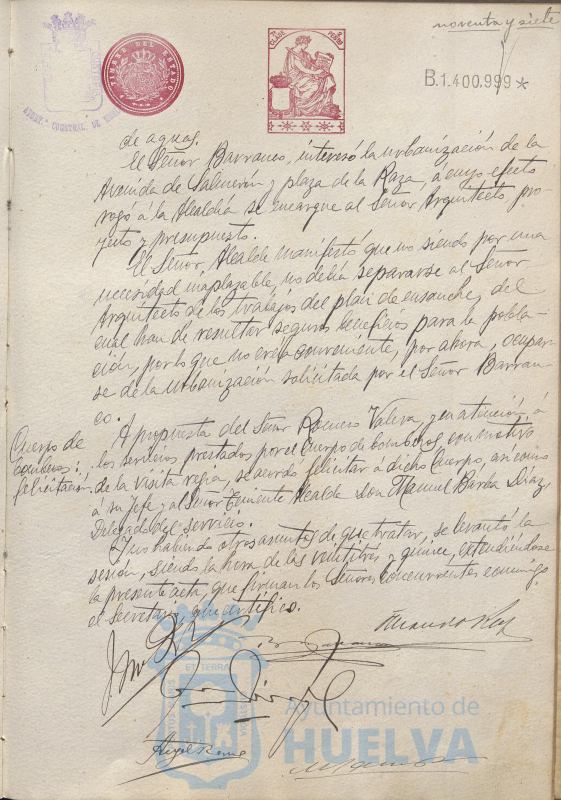 noventa y siete
TIMBRE DEL ESTADO
CLASE
B.1.400.999 *
de aguas.
El Señor Barranco, interesó la urbanización de la
Avenida de Salmerón y plaza de la Raza, a cuyo efecto
rogó á la Alcaldía se encargue al Señor Arquitecto pro-
yecto y presupuesto.
El Señor Alcalde manifestó que no siendo por una
necesidad inaplazable, no debía separarse al Señor
Arquitecto de los trabajos del plan de ensanche, del
cual han de resultar seguros beneficios para la pobla-
ción, por lo que no creía conveniente, por ahora, ocupar-
se de la urbanización solicitada por el Señor Barran-
co.
Cuerpo de
bomberos:
felicitación.
A propuesta del Señor Romero Valera y en atención á
los servicios prestados por el Cuerpo de bomberos con motivo
de la visita regia, se acordó felicitar á dicho Cuerpo, así como
á su Jefe y al Señor Teniente Alcalde Don Manuel Barba Díaz,
Delegado del servicio.
Y no habiendo otros asuntos de que tratar, se levantó la
sesión, siendo la hora de las veintitres y quince, extendiéndose
la presente acta, que firman los Señores concurrentes conmigo
el Secretario, que certifico.
Ayuntamiento de
HUELVA